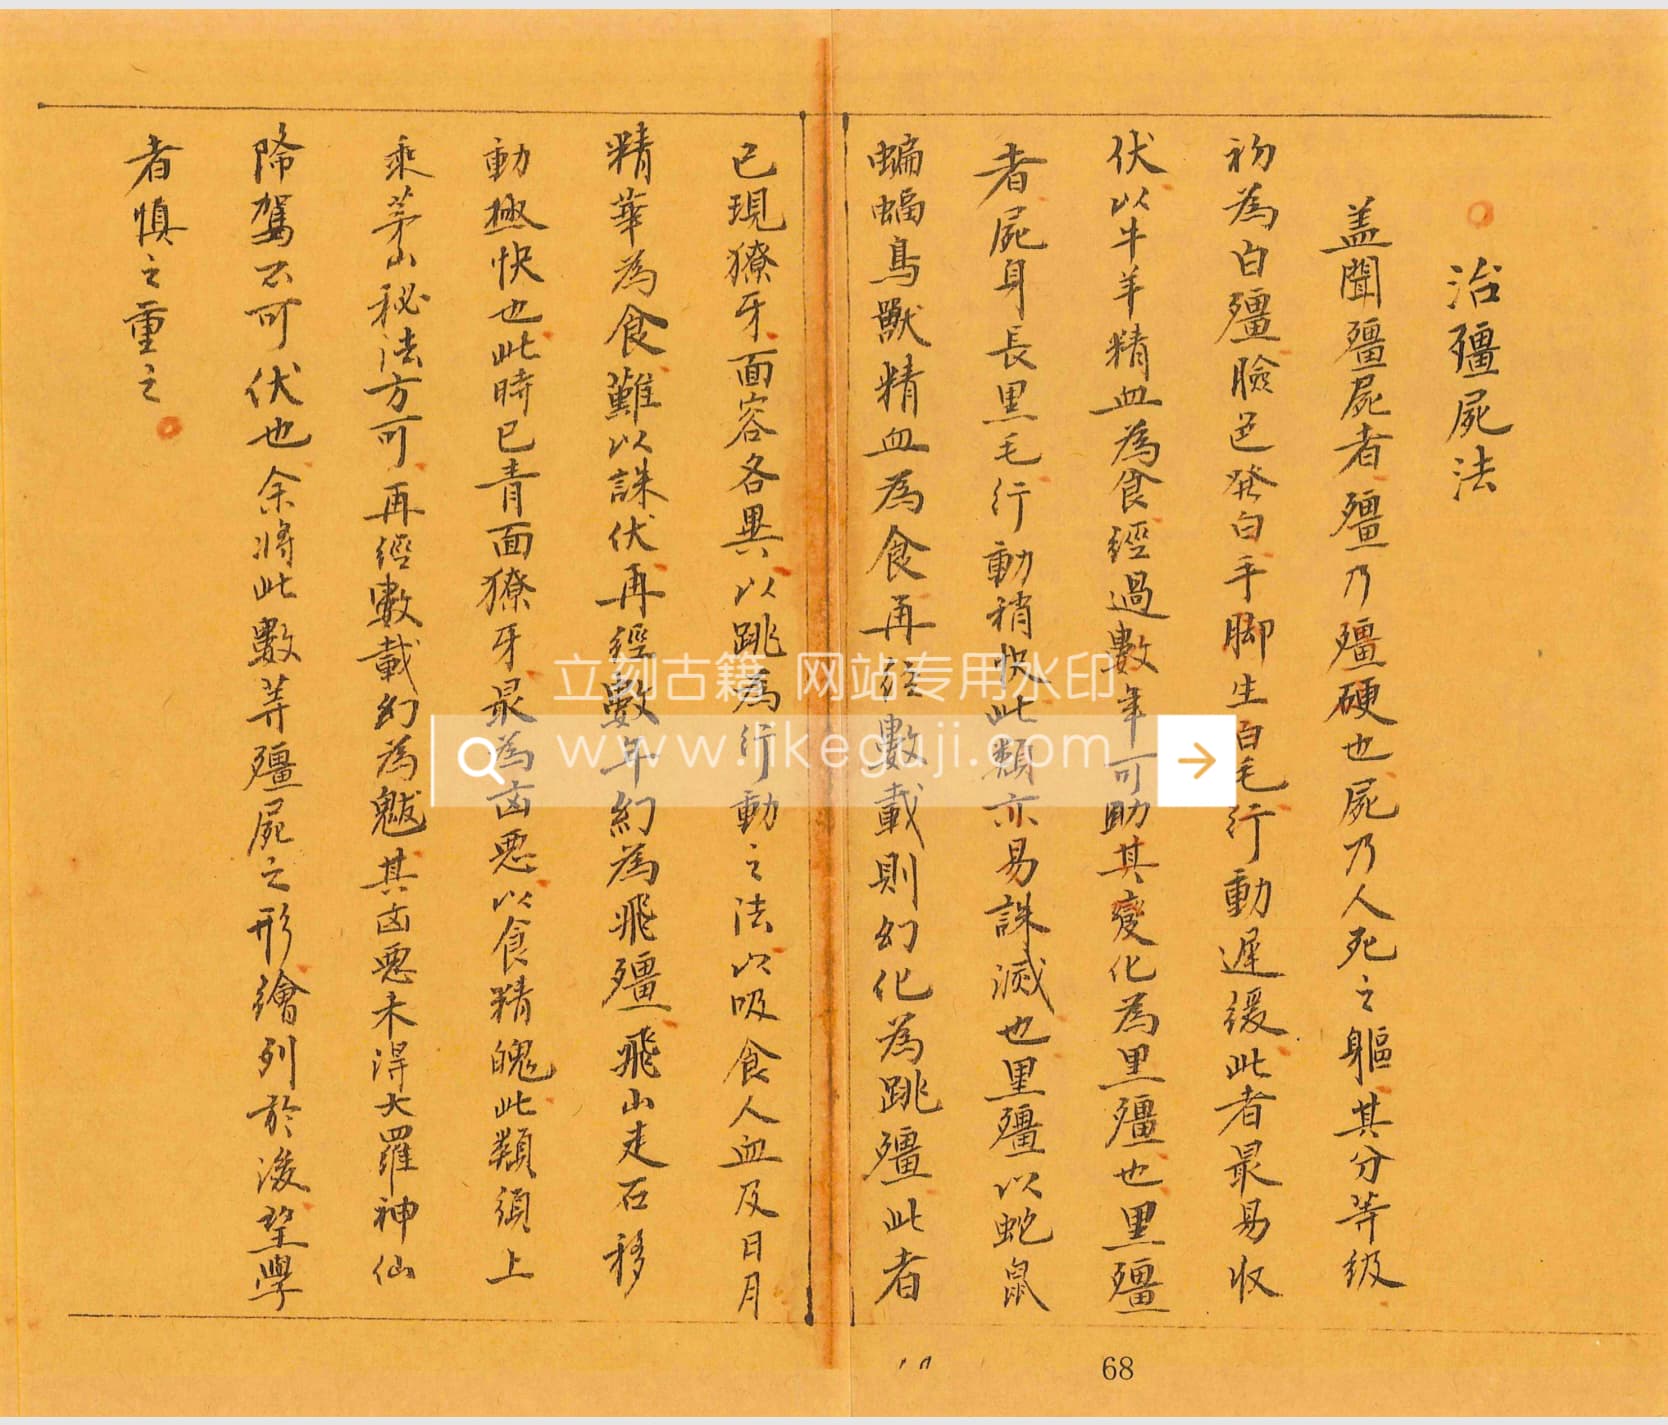 治殭屍法
盖聞殭屍者殭乃殭硬也屍乃人死之軀其分等级
初為白殭臉色發白手脚生白毛行動遲緩此者最易收
伏以牛羊精血為食經過數年可助其變化為黑殭也黑殭
者屍身長黑毛行動稍快此類亦易誅滅也黑殭以蛇鼠
蝙蝠鳥獸精血為食再经數載則幻化為跳殭此者
已現獠牙面容各異以跳為行動之法以吸食人血及日月
精華為食難以誅伏再經數年幻為飛殭飛山走石移
動極快也此時已青面獠牙最為凶惡以食精魄此類須上
乘茅山秘法方可再經數載幻為魃其凶惡未得大羅神仙
降駕不可伏也余將此數等殭屍之形繪列於後望學
者慎之重之
68
立刻古籍 网站专用水印
www.likeguji.com